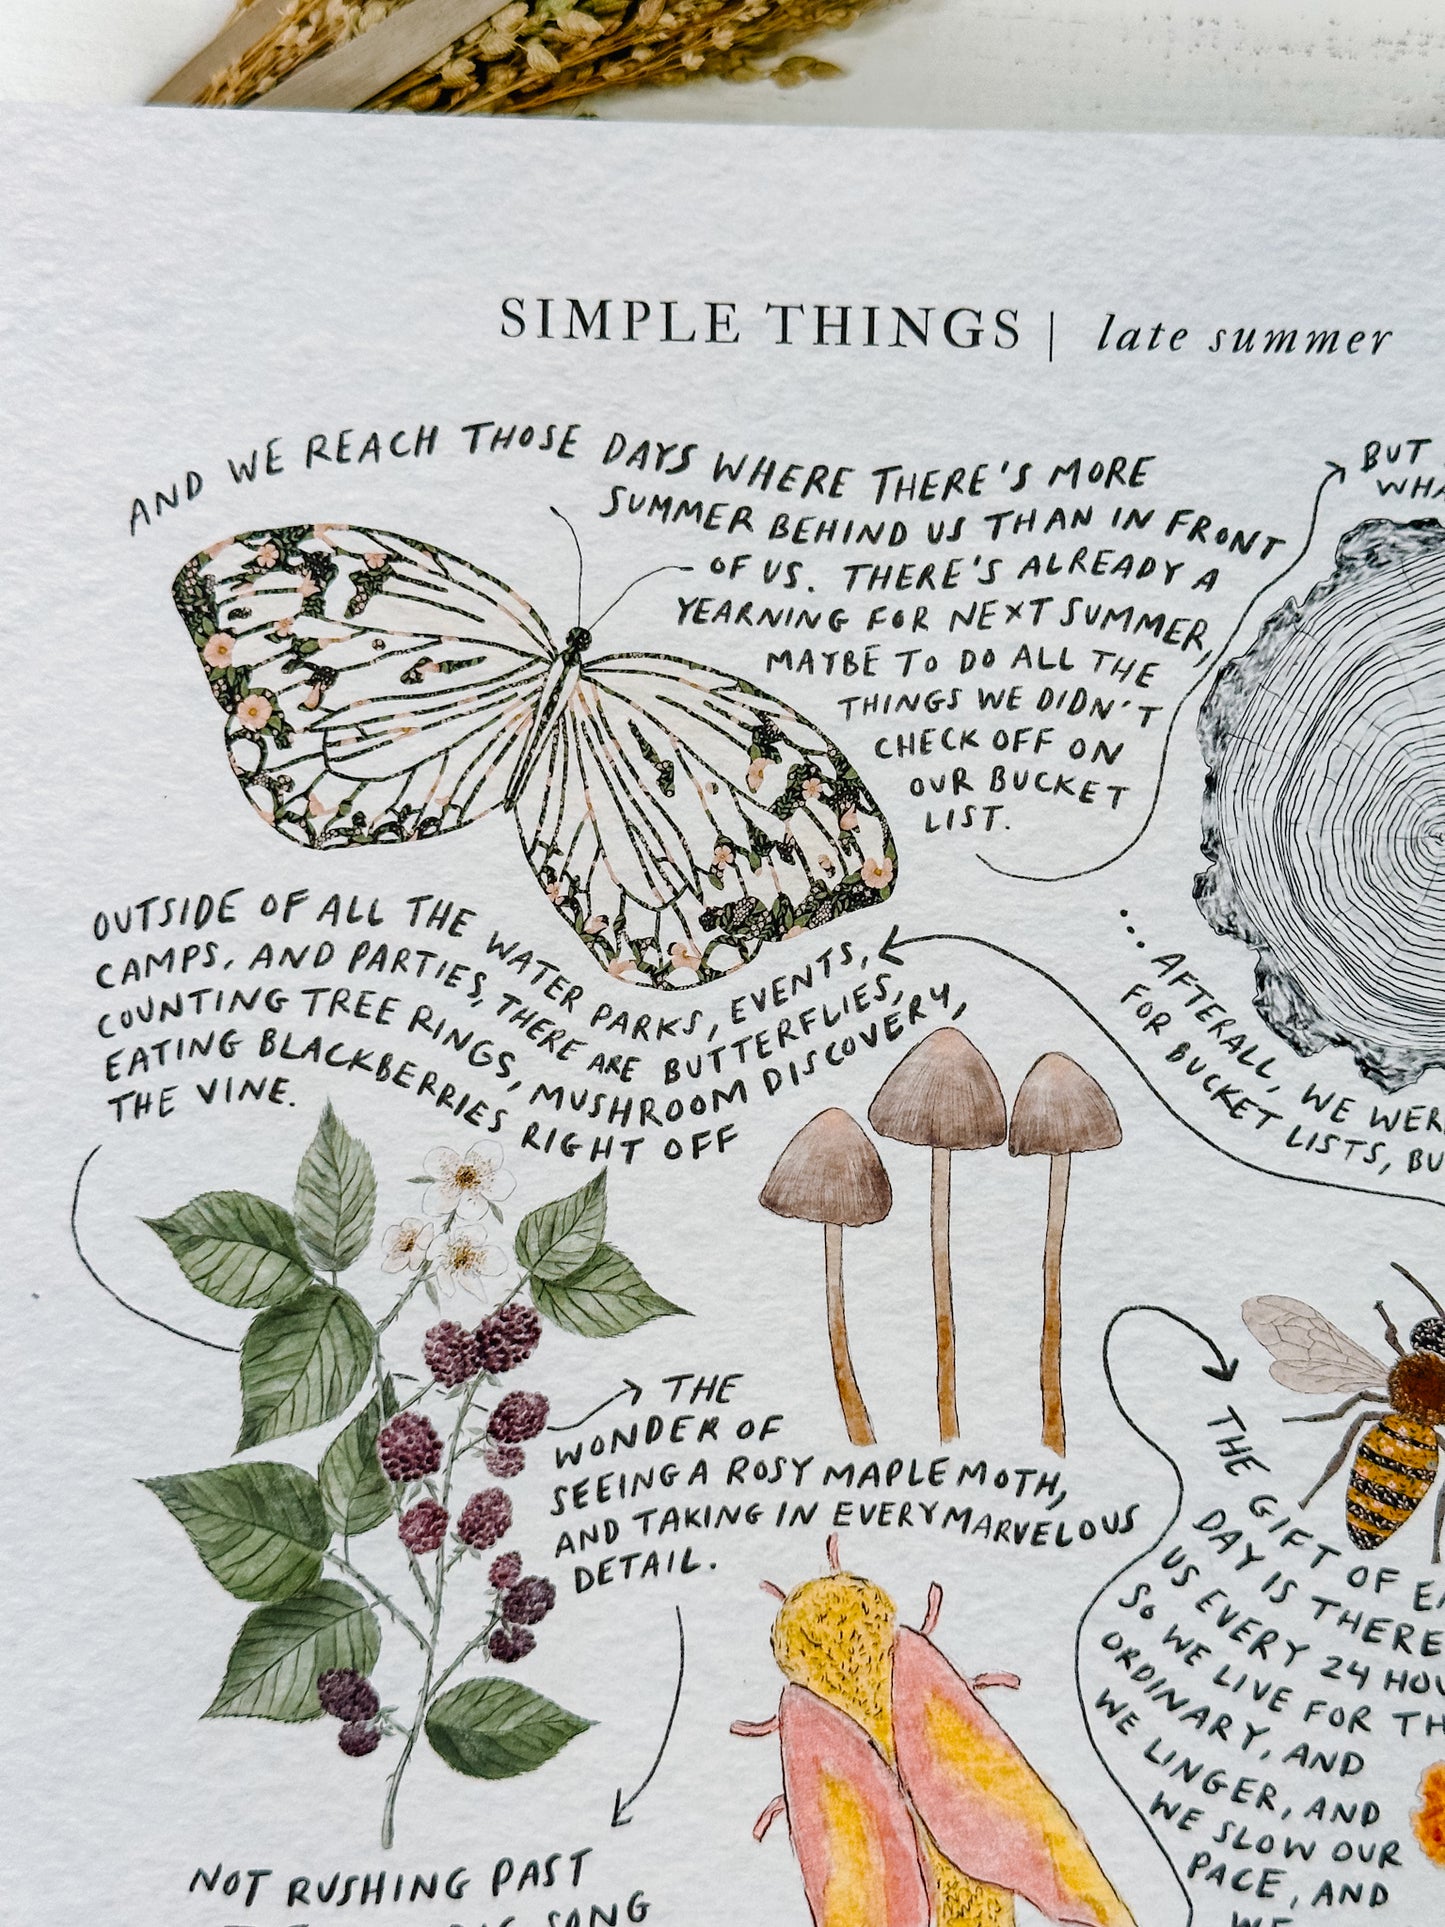 SIMPLE THINGS | late summer
AND WE REACH THOSE DAYS WHERE THERE'S MORE
SUMMER BEHIND US THAN IN FRONT
OF US. THERE'S ALREADY A
YEARNING FOR NEXT SUMMER,
MAYBE TO DO ALL THE
THINGS WE DIDN'T
CHECK OFF ON
OUR BUCKET
LIST.
BUT
OUTSIDE OF ALL THE WATER PARKS, EVENTS,
CAMPS, AND PARTIES, THERE ARE BUTTERFLIES,
COUNTING TREE RINGS, MUSHROOM DISCOVERY,
EATING BLACKBERRIES RIGHT OFF
THE VINE.
...AFTERALL, WE
FOR BUCKET LISTS,
THE
WONDER OF
SEEING A ROSY MAPLE MOTH,
AND TAKING IN EVERY MARVELOUS
DETAIL.
THE GIFT OF
DAY IS THERE
US EVERY 24
SO WE LIVE FOR
ORDINARY, AND
WE LINGER, AND
WE SLOW OUR
PACE, AND
WE
NOT RUSHING PAST
SONG